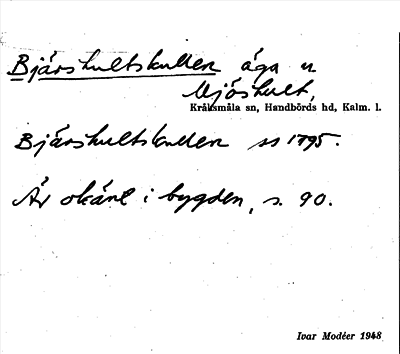 Bjärshultskullen äga u
Mjöshult,
Kråksmåla sn, Handbörds hd, Kalm. l.
Bjärshultskullen ss 1795.
Är okänt i bygden, s. 90.
Ivar Modéer 1948